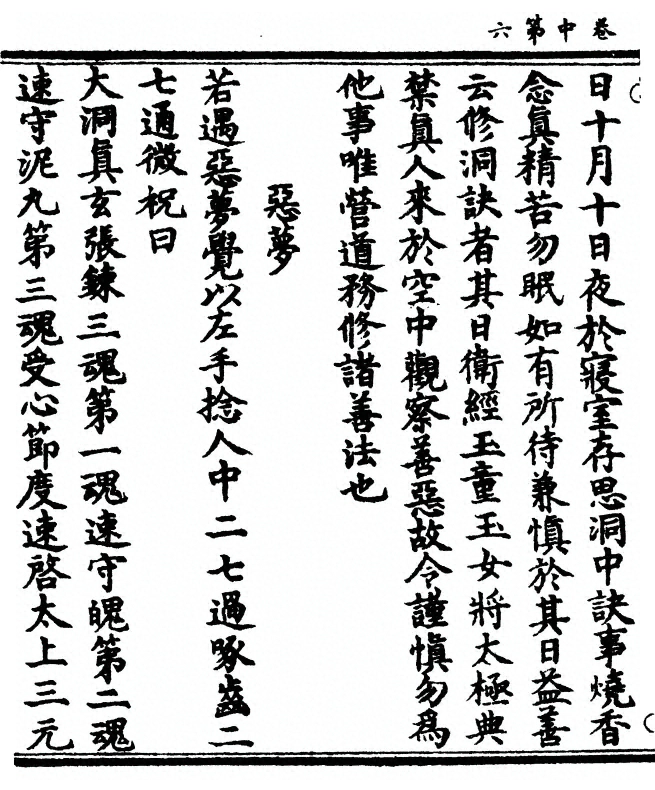 卷中第六
日十月十日夜於寢室存思洞中訣事燒香
念眞精苦勿眠如有所待兼愼於其日益善
云修洞訣者其日衛經玉童玉女將太極典
禁眞人來於空中觀察善惡故令謹愼勿爲
他事唯營道務修諸善法也
惡夢
若遇惡夢覺以左手捻人中二七過啄齒二
七通微祝曰
大洞眞玄張鍊三魂第一魂速守魄第二魂
速守泥丸第三魂受心節度速啓太上三元